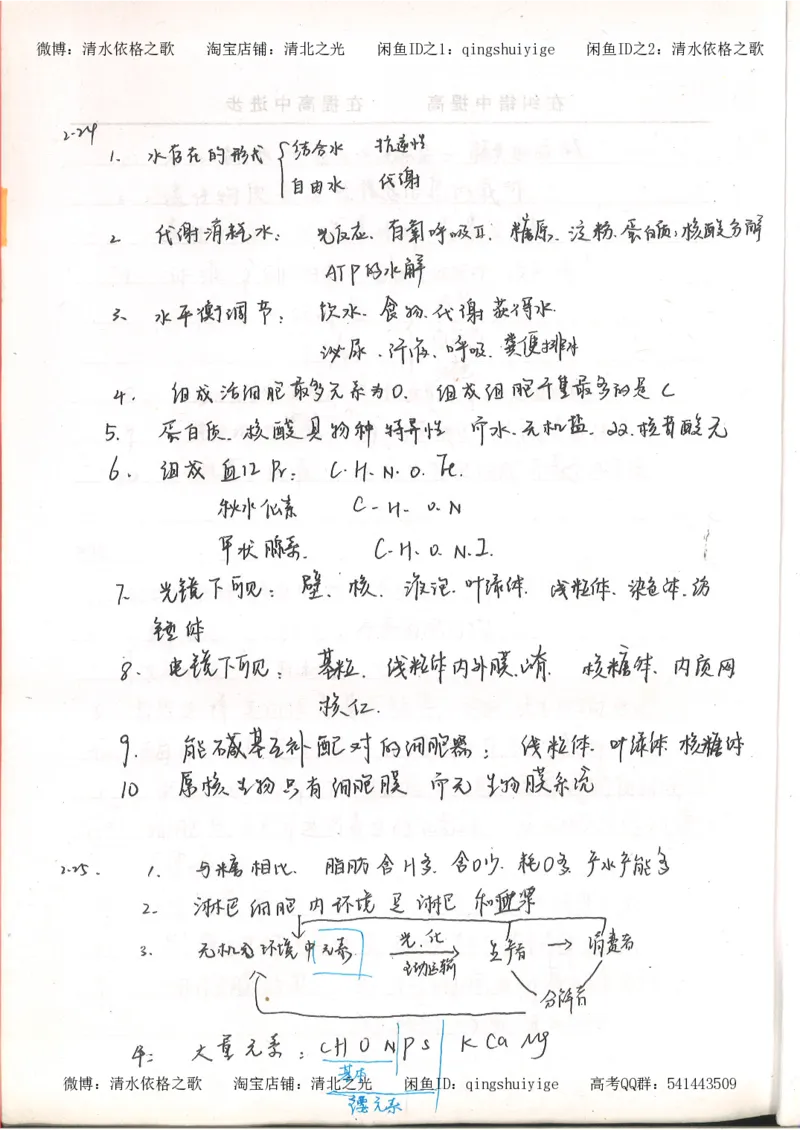 微博：清水依格之歌 淘宝店铺：清北之光 闲鱼ID之1：qingshuiyige 闲鱼ID之2：清水依格之歌
在纠错中提高 在提高中进步
2-24
1. 水存在的形式 { 结合水 抗逆性
自由水 代谢
2 代谢消耗水： 光反应、有氧呼吸Ⅱ、糖原、淀粉、蛋白质、核酸分解
ATP的水解
3. 水平衡调节： 饮水、食物、代谢获得水.
泌尿、汗液、呼吸、粪便排水
4. 组成活细胞最多元素为O. 组成细胞干重最多的是C
5. 蛋白质、核酸具物种特异性 而水、无机盐、aa、核苷酸无
6. 组成血红Pr： C.H.N.O.Fe.
秋水仙素 C-H-O.N
甲状腺素. C-H.O.N.I.
7. 光镜下可见： 壁、核、液泡、叶绿体、线粒体、染色体、纺
锤体
8. 电镜下可见： 基粒、线粒体内外膜、嵴、核糖体、内质网
核仁.
9. 能碱基互补配对的细胞器： 线粒体、叶绿体、核糖体
10 原核生物只有细胞膜 而无生物膜系统
2-25. 1. 与糖相比、脂肪含H多、含O少、耗O多、产水产能多
2. 淋巴细胞内环境是淋巴和血浆
3. 无机环境中元素 光、化 主动运输 生产者 → 消费者
分解者
4: 大量元素：CHON PS K Ca Mg
基本
微博：清水依格之歌 淘宝店铺：清北之光 闲鱼ID：qingshuiyige 高考QQ群：541443509
元素